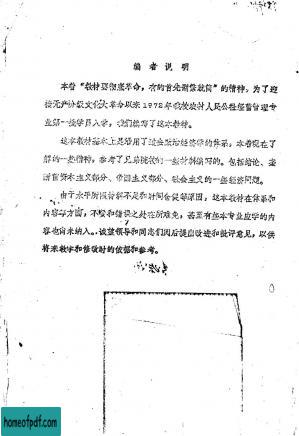 编 者 说 明
本着“教材要彻底革命，有的首先删繁就简”的精神，为了迎
接无产阶级文化大革命以来1972年我校农村人民公社经营管理专
业第一级学员入学，我们编写了这本教材。
这本教材基本上是沿用了过去政治经济学的体系，本着现在了
解的一些精神，参考了兄弟院校的一些材料编写的。包括绪论、
资本主义部分、帝国主义部分、社会主义的一些经济问题。
由于水平所限资料不足和时间仓促等原因，这本教材在体系和
内容等方面，不妥和错误之处在所难免，甚至有些本专业应学的内
容也尚未纳入。诚望领导和同志们阅后提出改进和批评意见，以供
将来教学和修改时的依据和参考。
homeofpdf.com